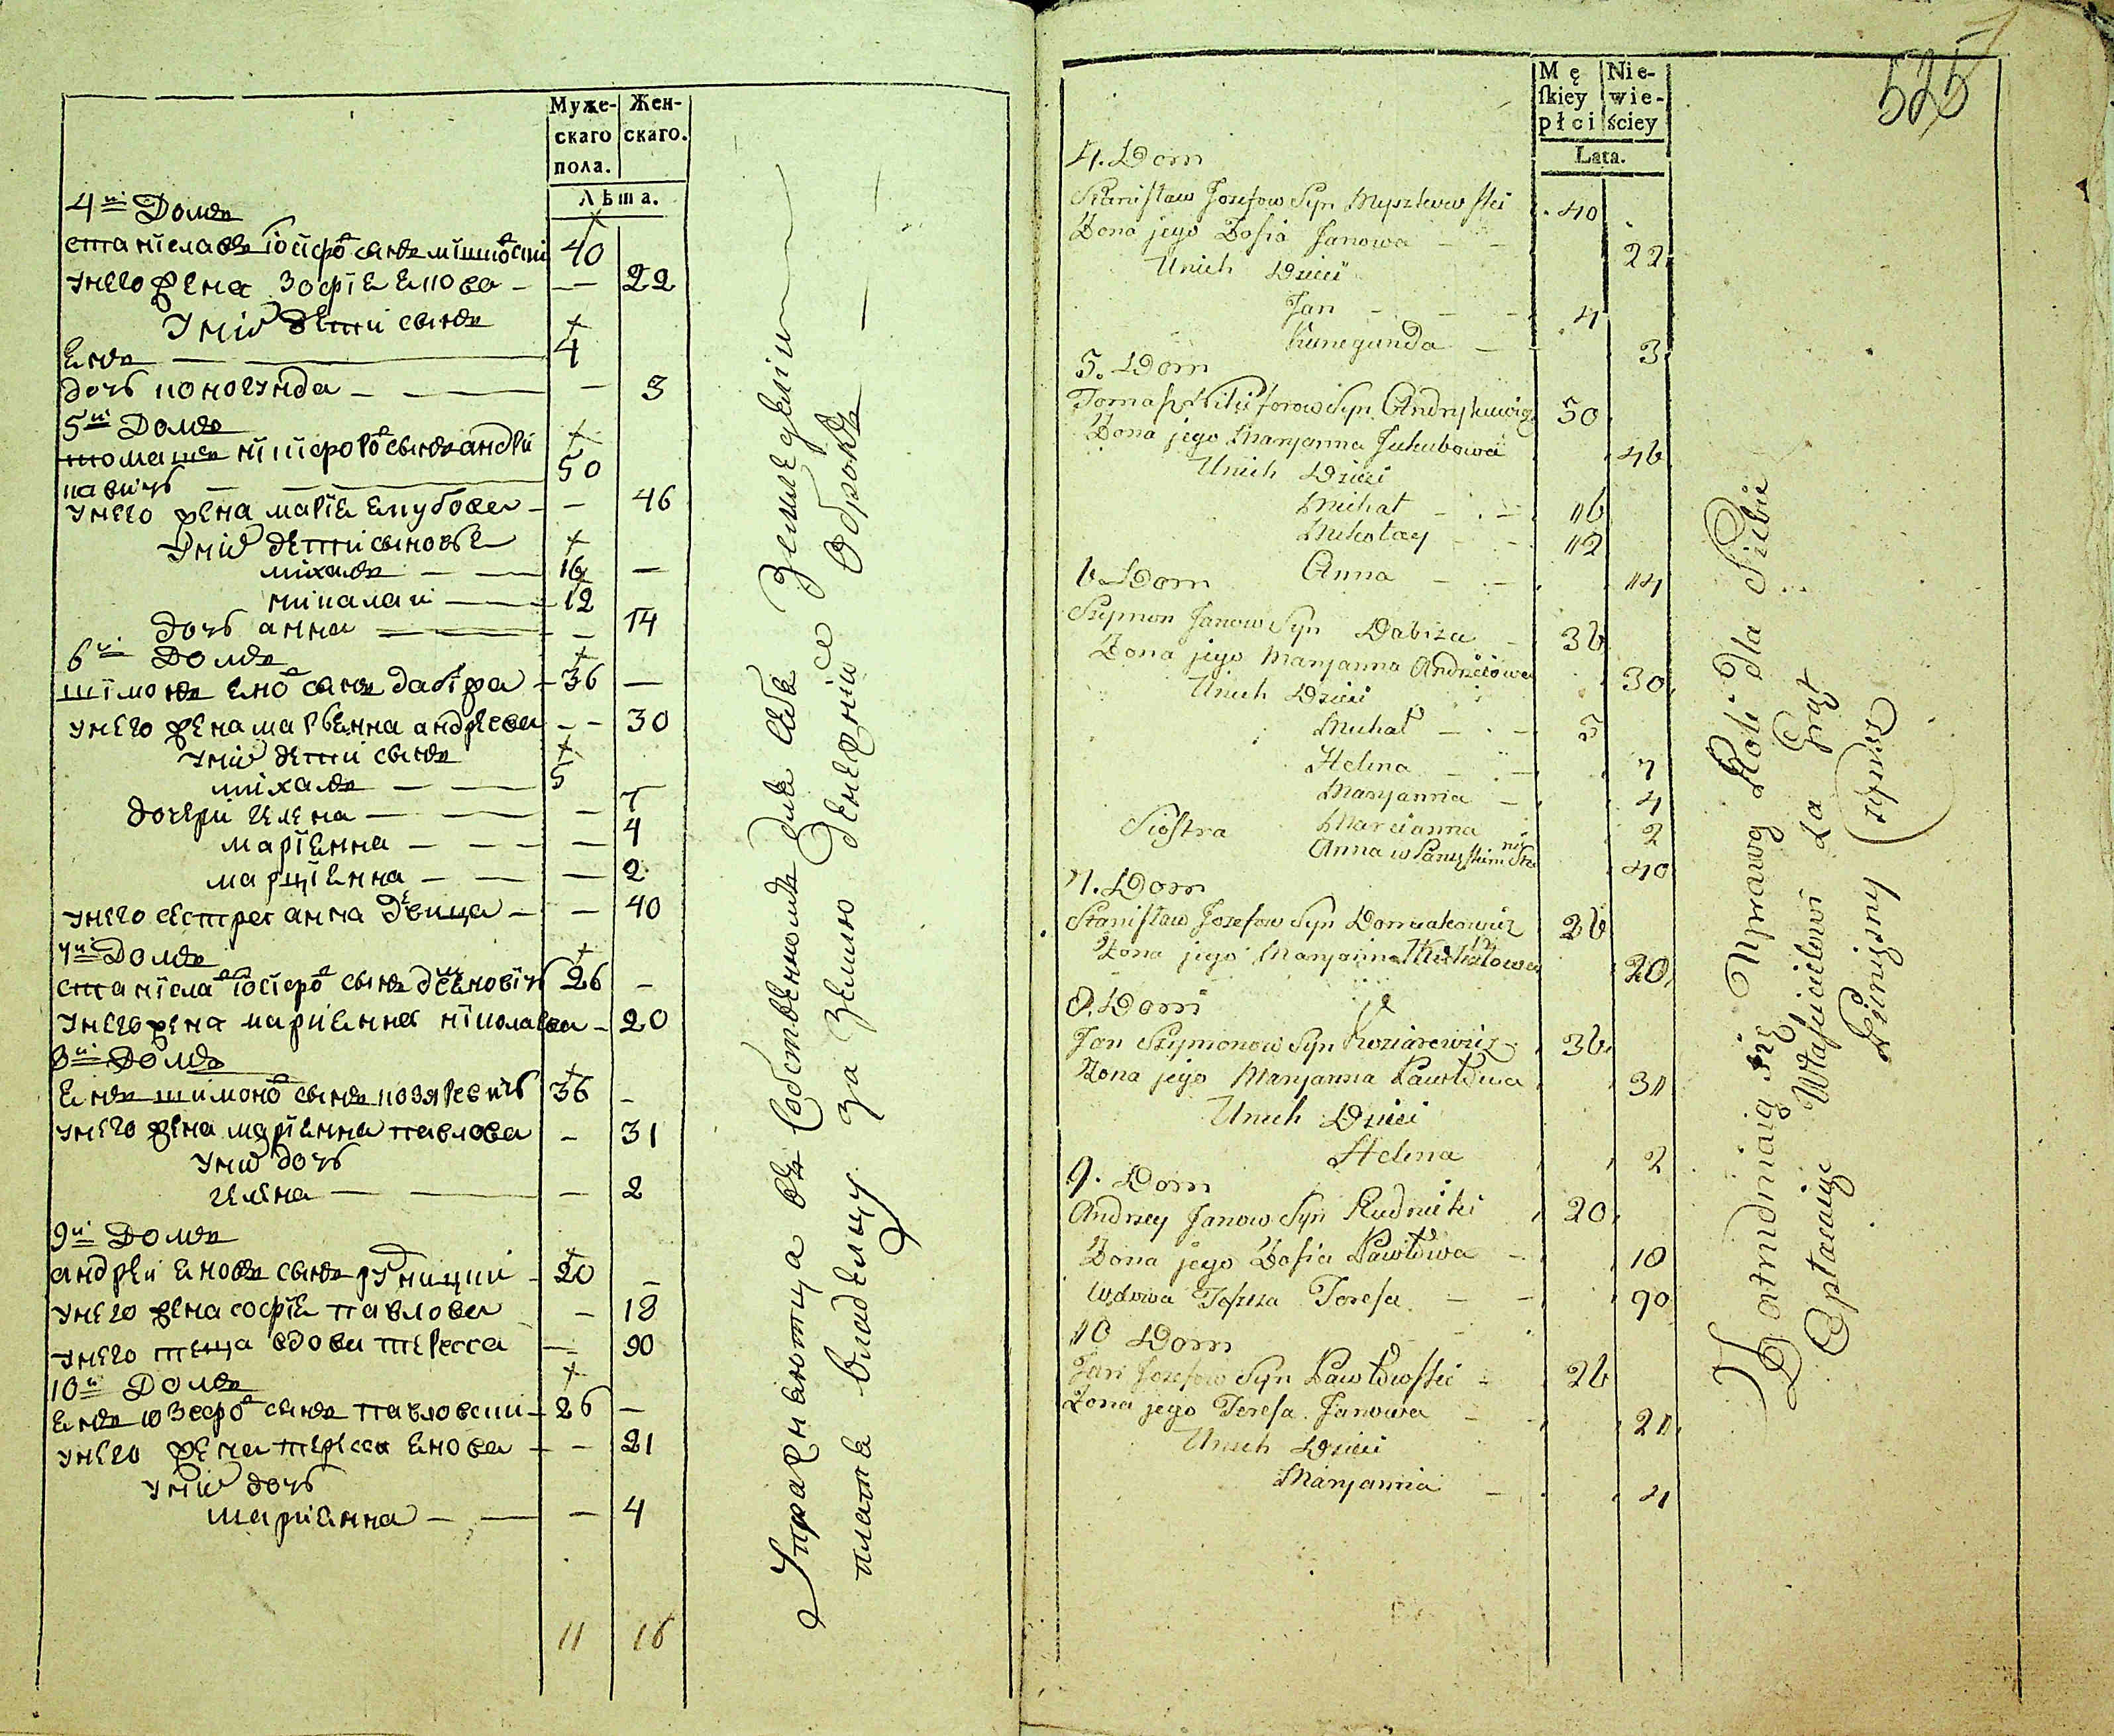 Муже-
скаго
пола.
Жен-
скаго.
Лѣта.
4й Домъ
станиславъ іосифовъ сынъ
40
у него жена зофія янова - - 22
у них дети сынъ
янъ 4
дочь коногунда - - 3
5й Домъ
томашъ никифоровъ сынъ андри
кавичъ 50
у него жена марія якубова - - 46
у них дети сыновья
михалъ - 16 -
николай - 12
дочь анна - - 14
6й Домъ
шимонъ яновъ сынъ дабижа - 36 -
у него жена марьянна андреева - - 30
у них дети сынъ
михалъ - 5
дочери гелена - - 7
маріянна - - - 4
марціянна - - 2
у него сестра анна девица - - 40
7й Домъ
станиславъ іосифовъ сынъ 26 -
у него жена мариянна николаева - 20
8й Домъ
янъ шимоновъ сынъ козяревичъ 36 -
у него жена маріянна павлова - 31
у них дочь
гелена - - 2
9й Домъ
андрей яновъ сынъ рудницкий - 20 -
у него жена софія павлова - 18
у него теща вдова тересса - 90
10й Домъ
янъ юзефовъ сынъ павловски - 26 -
у него жена тересса янова - - 21
у них дочь
мариянна - - - 4
11 16
Упражняютца въ Собственномъ для себя Земледелии
платя владелцу за землю денежние Оброкъ
525
Mę
ſkiey
płci
Nie-
wie-
ściey
Lata.
4. Dom
Stanisław Jozefow Syn Myszkowski 40
Żona jego Zofia Janowa - - 22
Unich Dzieci
Jan - - - 4
Kunegunda - 3
5. Dom
Tomasz Nikiforow Syn Andrykiewicz 50
Żona jego Maryanna Jakubowa 46
Unich Dzieci
Michał - - 16
Mikołay - - 12
Anna - - 14
6. Dom
Szymon Janow Syn Dabiza - 36
Żona jego Maryanna Andrzeiowa 30
Unich Dzieci
Michał - - 5
Helena - - 7
Maryanna - 4
Marcianna 2
Siostra Anna w Panyńskim 40
7. Dom
Stanisław Jozefow Syn 26
Żona jego Maryanna 20
8. Dom
Jan Szymonow Syn Koziarewicz 36
Żona jego Maryanna Pawłowa 31
Unich Dzieci
Helena 2
9. Dom
Andrzey Janow Syn Rudnicki 20
Żona jego Zofia Pawłowa - 18
Wdowa Teresa - - 90
10 Dom
Jan Jozefow Syn Pawłowski 26
Żona jego Teresa Janowa - - 21
Unich Dzieci
Maryanna - 4
Zatrudniaią się Uprawą Roli dla Siebie
Opłacaiąc Właścicielowi za Grąt
Pieniężny czynsz